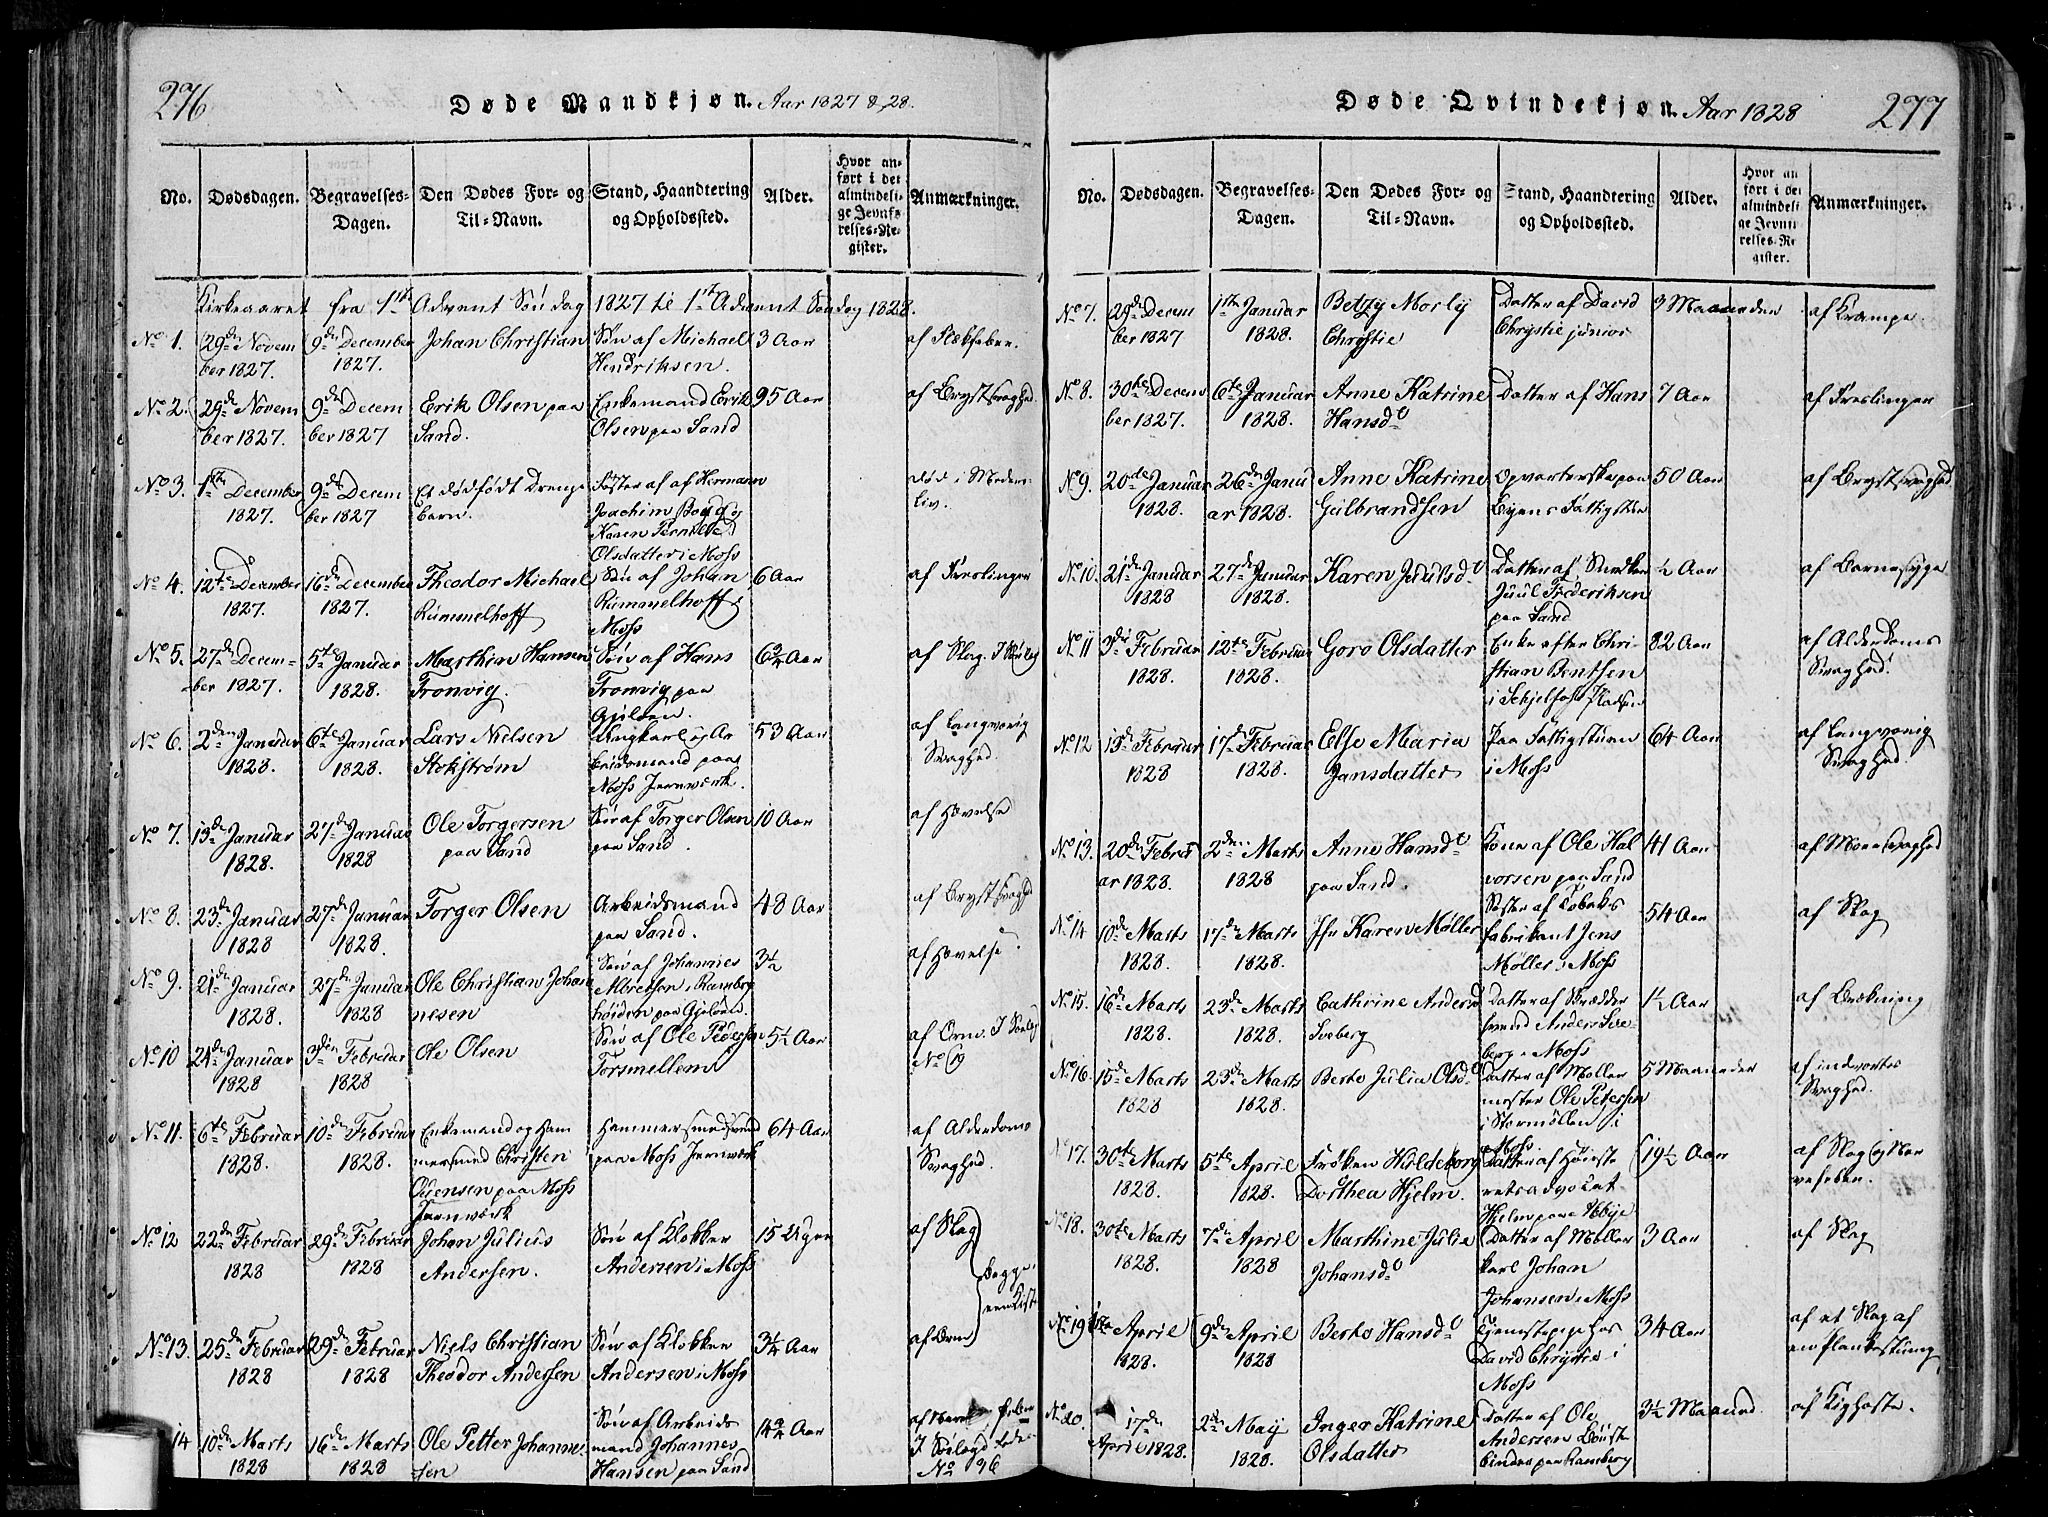 276
Døde Mandkjøn. Aar 1827 & 28.
No.
Dødsdagen.
Begravelses-Dagen.
Den Dødes For- og Til-Navn.
Stand, Haandtering og Opholdssted.
Alder.
Hvor anført i det almindelige Jevnførelses-Register.
Anmærkninger.
Kirkeaaret fra 1ste Advent Søndag 1827 til 1ste Advent Søndag 1828.
No 1. 29de November 1827. 9de December 1827. Johan Christian Søn af Michael Hendriksen. 3 Aar
No 2. 29de November 1827. 9de December 1827 Erik Olsen paa Sand. Enkemand Erik Olsen paa Sand 95 Aar af Brystsvaghed
No 3. 1ste December 1827. 9de December 1827 Et dødfødt Drengebarn. Joachim og Karen Pernille Olsdatter i Moss død i Moders Liv.
No 4. 12te December 1827. 16de December 1827. Theodor Michael Rummelhoff Søn af Johan Rummelhoff i Moss 6 Aar af Freslinger
No 5. 27de December 1827. 5te Januar 1828. Marthin Hansen Tronvig. Søn af Hans Tronvig paa Gjeløen. 6 3/4 Aar af Slag.
No 6. 2den Januar 1828. 6te Januar 1828. Lars Nielsen Stokstrøm Moss Jernværk. 53 Aar af Langvarig Svaghed.
No 7. 13de Januar 1828. 27de Januar 1828 Ole Torgersen paa Sand Søn af Torger Olsen paa Sand. 10 Aar af Hævelse
No 8. 23de Januar 1828 27de Januar 1828. Torger Olsen Arbeidsmand paa Sand. 48 Aar af Brystsvaghed
No 9. 21de Januar 1828. 27de Januar 1828 Ole Christian Johannesen Søn af Johannes i Ramberg paa Gjeløen. 3 1/2 af Hævelse.
No 10 24de Januar 1828 3die Februar 1828 Ole Olsen Søn af Ole Pedersen 5 1/2 Aar af Orm. No 19
No 11. 6te Februar 1828. 10de Februar 1828. Enkemand og Hammersmed Christen paa Moss Jernværk Hammersmedsvend paa Moss Jernværk 64 Aar af Alderdoms Svaghed.
No 12 22de Februar 1828 29de Februar 1828 Johan Julius Andersen. Søn af Klokker Andersen i Moss 15 Uger af Slag
No 13. 25de Februar 1828 29de Februar 1828 Niels Christian Theodor Andersen Søn af Klokker Andersen i Moss 3 1/4 Aar af Orm
14 10de Marts 1828 16de Marts 1828 Ole Petter Johannesen Søn af Arbeidsmand Johannes Hansen paa Sand 4 3/4 Aar No 96
277
Døde Qvindekjøn. Aar 1828
No.
Dødsdagen.
Begravelses-Dagen.
Den Dødes For- og Til-Navn.
Stand, Haandtering og Opholdssted.
Alder.
Hvor anført i det almindelige Jevnførelses-Register.
Anmærkninger.
No 7. 29de December 1827 1ste Januar 1828. Betzy Morly Chrystie Datter af David Chrystie junior 3 Maaneder af Krampe.
No 8. 30te December 1827. 6te Januar 1828. Anne Katrine Hansd. Datter af Hans 7 Aar af Freslinger
No 9. 20de Januar 1828. 26de Januar 1828. Anne Katrine Gulbrandsen Opvarterske paa Byens 50 Aar af Brystsvaghed
No 10. 21de Januar 1828 27de Januar 1828. Karen Juulsd. Datter af Juul Frederiksen paa Sand 1/2 Aar af Barnesyge
No 11 3die Februar 1828. 12te Februar 1828. Goro Olsdatter Enke efter Christian Bentsen 82 Aar af Alderdoms Svaghed.
No 12 13de Februar 1828 17de Februar 1828 Else Maria Jansdatter paa Fattigstuen i Moss 64 Aar af Langvarig Svaghed.
No 13. 20de Februar 1828. 2den Marts 1828 Anne Hansd. paa Sand. Kone af Ole Halvorsen paa Sand 41 Aar
No 14 10de Marts 1828. 17de Marts 1828. Jfr Karen Møller Søster af Tobaksfabrikant Jens Møller i Moss 54 Aar af Slag
No 15. 16de Marts 1828. 23de Marts 1828. Cathrine Andersd. Sveberg Datter af Skrædder i Moss 1 1/2 Aar af Brækning
No 16. 15de Marts 1828 23de Marts 1828. Berte Julia Olsd. Datter af Møllemester Ole Petersen i Stormøllen i Moss 5 Maaneder af indvortes Svaghed.
No 17. 30te Marts 1828. 5te April 1828. Frøken Hildeborg Dorthea Hjelm. Datter af Høiesteretsadvocat Hjelm 19 1/2 Aar af Slag og Nervefeber.
No 18. 30te Marts 1828. 7de April 1828 Marthine Julie Johansd. Datter af Møllerkarl Johan Johansen i Moss 3 Aar af Slag
No 19 April 1828. 9de April 1828 Berte Hansd. Tjenestepige hos David Chrystie i Moss 34 Aar af et Slag af en Plankestump
No 20. 17de April 1828. 2den Maij 1828. Inger Katrine Olsdatter Datter af Ole Andersen paa Ramberg 3 1/2 Maaned af Kighoste.